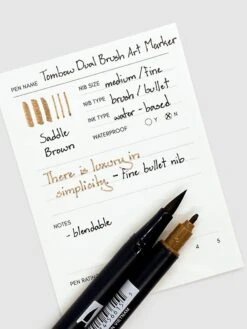 PEN NAME Tombow Dual Brush Art Marker
NIB SIZE medium / fine
NIB TYPE brush / bullet
INK TYPE water - based
WATERPROOF Y N
Saddle
Brown
There is luxury in
simplicity - fine bullet nib
NOTES
- blendable
4 5
PEN RATING